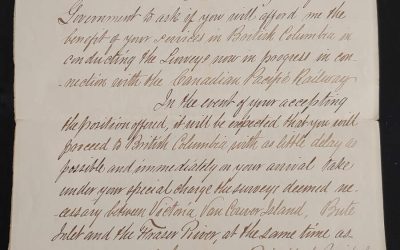 Government to ask if you will afford me the
benefit of your services in British Columbia in
conducting the Surveys now in progress in con-
nection with the Canadian Pacific Railway
In the event of your accepting
the position offered, it will be expected that you will
proceed to British Columbia with as little delay as
possible and immediately on your arrival take
under your special charge the surveys deemed ne-
cessary between Victoria, Van Couver Island, Bute
Inlet and the Fraser River, at the same time as